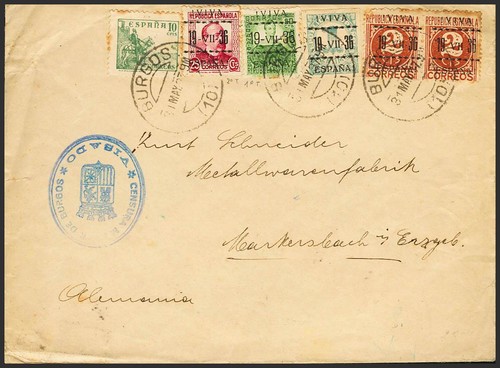 ESPAÑA 10
REPÚBLICA ESPAÑOLA
¡VIVA
REPUBLICA ESPAÑOLA
REPUBLICA ESPAÑOLA
19-VII-36
19-VII-36
19-VII-36
19-VII-36
19-VII-36
25 CORREOS Cts
ESPAÑA
2 CORREOS
2 CORREOS
BURGOS
31 MAY
(10)
BURGOS
(10)
31 MAY
(10)
VISADO
CENSURA
DE BURGOS
Kurt Schneider
Metallwarenfabrik
Markersbach i/ Erzgeb.
Alemania